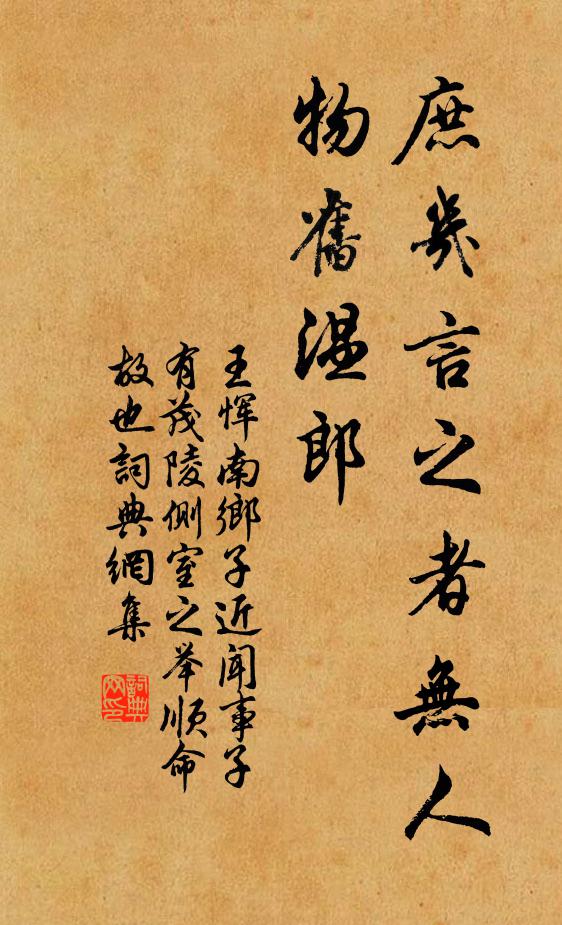 庶幾言之者無人
物舊温郎
王惲南鄉子近聞事子
有茂陵側室之举順命
故也詞典網集
詞典網印